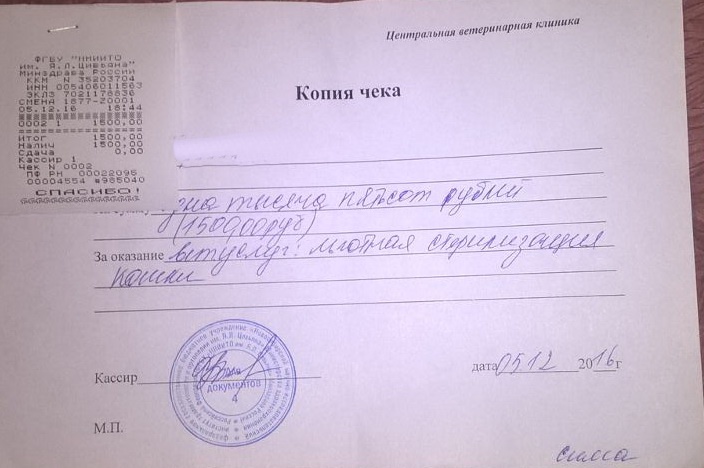 ФГБУ "ННИИТО
им. Я.Л.Цивьяна"
Минздрава России
ККМ N 35203704
ИНН 005406011563
ЭКЛЗ 7021178836
СМЕНА 1877-Z0001
05.12.16 18:44
0002 1 1500,00
Итог 1500,00
Налич 1500,00
Сдача 0,00
Кассир 1
Чек N 0002
ПФ РН 00022096
00004554 #985040
СПАСИБО!
Центральная ветеринарная клиника
Копия чека
тысяча пятьсот рублей
(1500,00руб)
За оказание ветуслуг: льготная стерилизация
кошки
Кассир
документов
4
дата 05.12 2016г
М.П.